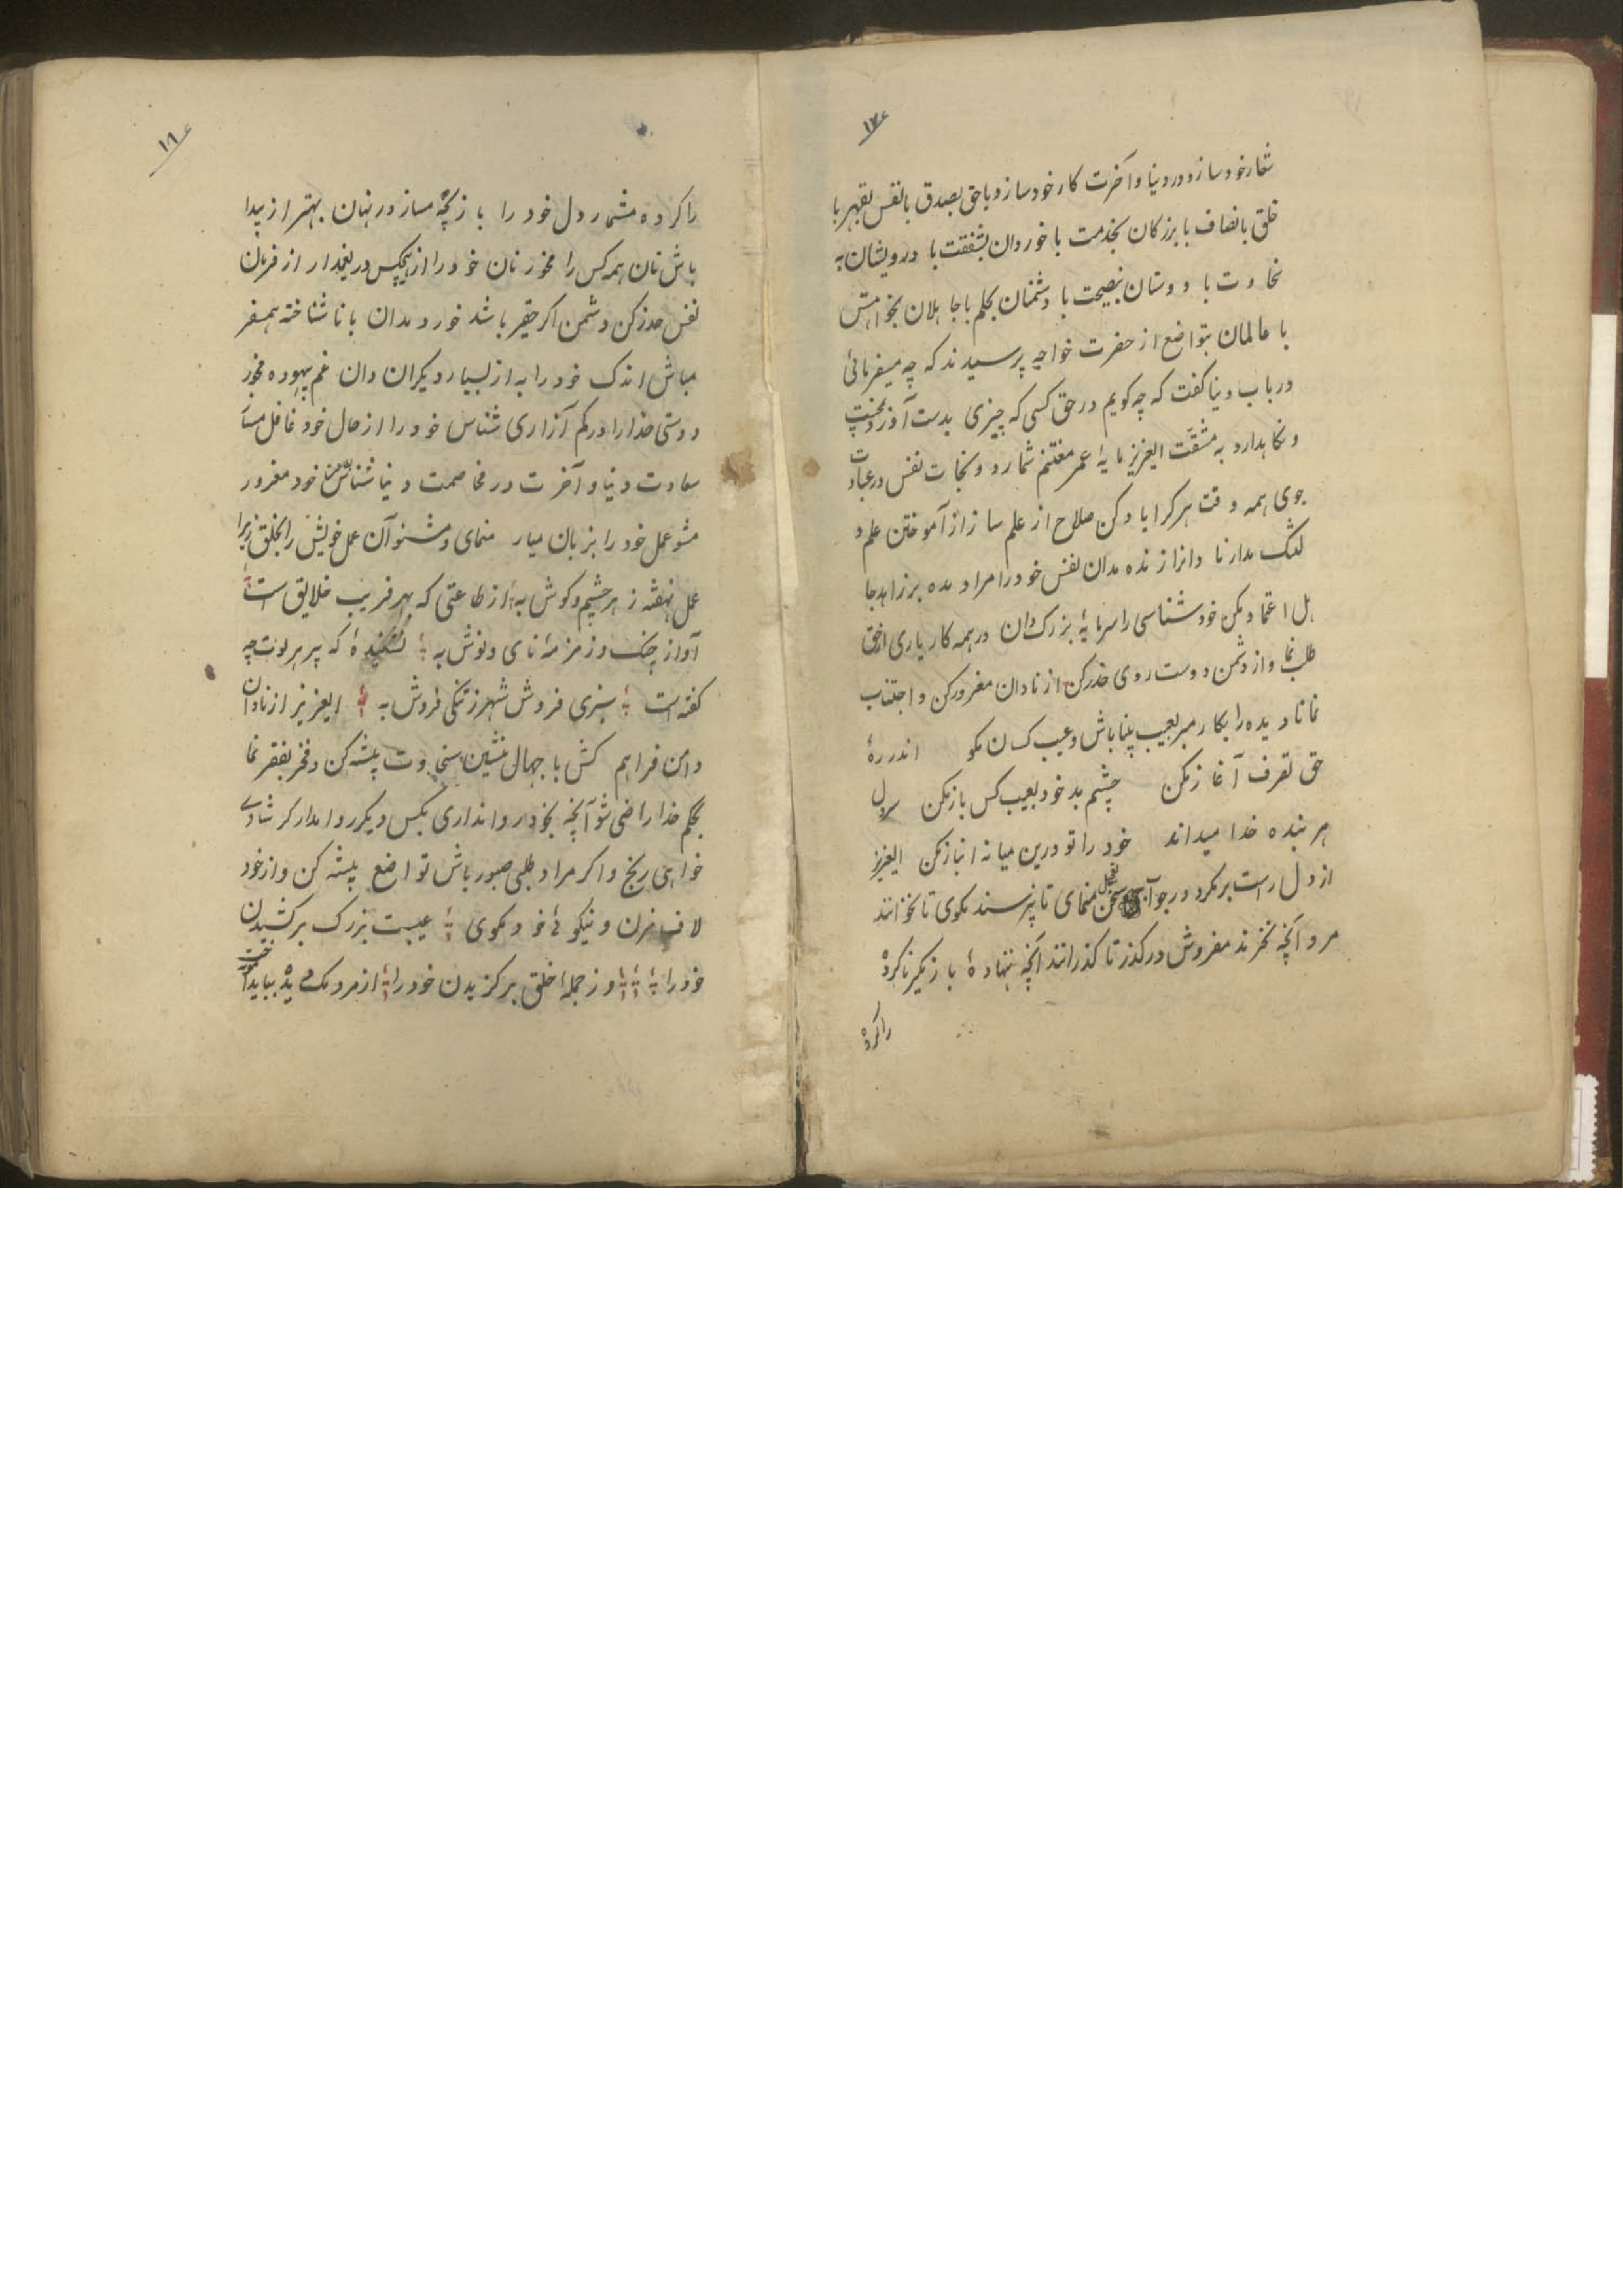 ۱۷۶
شعار خود سازد و در دنیا و آخرت کار خود سازد و با حق بصدق با نفس بقهر با
خلق بانصاف با بزرکان بخدمت با خوردان بشفقت با درویشان به
سخاوت با دوستان بنصیحت با دشمنان بحلم با جاهلان بخوامش
با عالمان بتواضع از حضرت خواجه پرسیدند که چه میفرمائی
در باب دنیا کفت که چه کویم در حق کسی که چیزی بدست آورد بمحنت
و نکاهدارد به مشقت ایعزیز مایۀ عمر مغتنم شمار و نجات نفس در عبادت
جوی همه وقت هر کرا یاد کن صلاح از علم ساز از آموختن علم
ننک مدار نادانرا زنده مدان نفس خود را مراد مده بر زاهد جا
هل اعتماد مکن خود شناسی را سرمایۀ بزرک دان در همه کار یاری از حق
طلب نما و از دشمن دوست روی حذر کن از نادان مغرور کن و اجتناب
نما نادیده را بکار مبر بعیب بینا باش و عیب کسان مکو اندر رۀ
حق تصرف آغاز مکن چشم بد خود بعیب کس باز مکن سر دل
هر بنده خدا میداند خود را تو درین میانه انباز مکن ایعزیز
از دل راست بر مکرد در جواب سخن تعجیل منمای تا نپرسند مکوی تا نخوانند
مرو آنچه نخرند مفروش در کذر تا کذرانند آنچه ننهادۀ باز مکیر ناکرده
را کرده
۱۸۶
را کرده مشمر دل خود را بازیچه مساز در نهان بهتر از پیدا
باش نان همه کس را مخور نان خود را از هیچکس دریغ مدار از فرمان
نفس حذر کن دشمن اکر حقیر باشد خورد مدان با ناشناخته همسفر
مباش اندک خود را به از بسیار دیکران دان غم بیهوده مخور
دوستی خدا را در کم آزاری شناس خود را از حال خود غافل مساز
سعادت دنیا و آخرت در مخاصمت دنیا شناس خود مغرور
مشو عمل خود را بزبان میار منمای و مشنو آن عمل خویش را بخلق زیرا
عمل نهفته ز هر چشم و کوش به از طاعتی که بهر فریب خلایق است
آواز چنک و زمزمۀ نای و نوش به نشنیدۀ که پیر هری لوت چه
کفته است سبزی فروش شهر ز تنکی فروش به ایعزیز از نادان
دامن فراهم کش با جهال منشین سخاوت پیشه کن و فخر بفقر نما
بحکم خدا راضی شو آنچه بخود روا نداری بکس دیکر روا مدار کر شادی
خواهی رنج و اکر مراد طلبی صبور باش تواضع پیشه کن و از خود
لاف مزن و نیکوئی خود مکوی عیبست بزرک بر کشیدن
خود را وز جملۀ خلق بر کزیدن خود را از مردمک دیده بباید آموخت